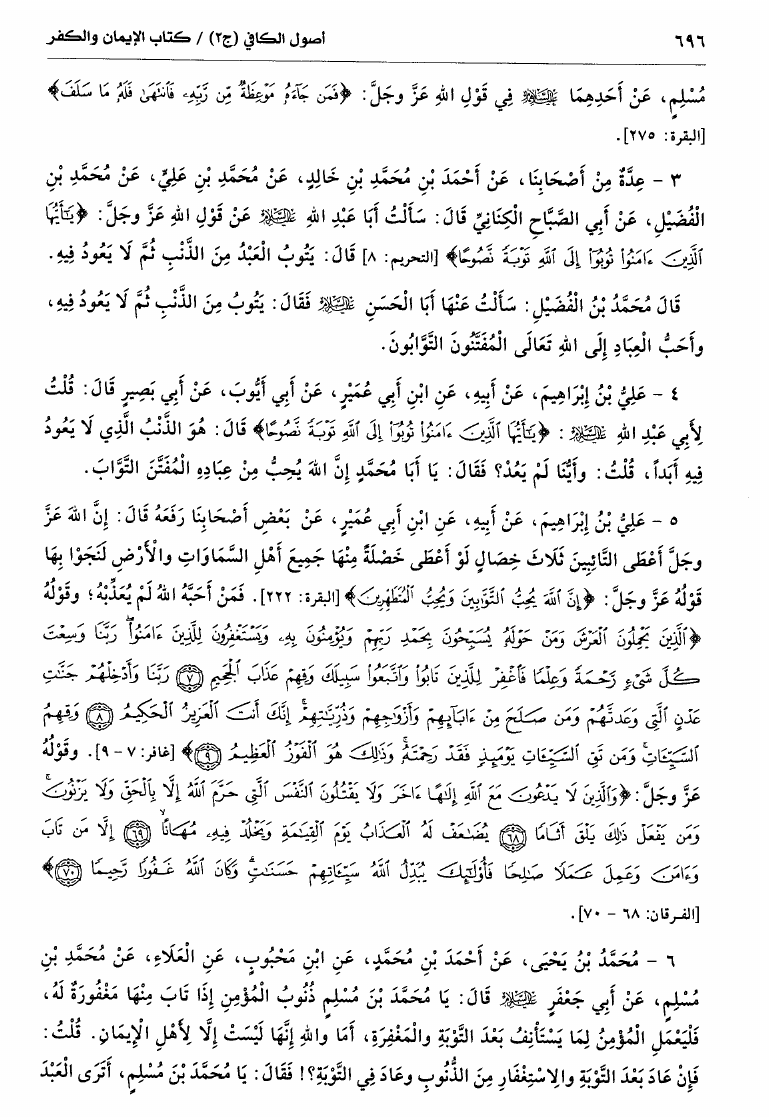 ٦٩٦ أصول الكافي (ج٢) / كتاب الإيمان والكفر
مُسْلِمٍ، عَنْ أَحَدِهِمَا عَلَيْهِ السَّلَام فِي قَوْلِ اللهِ عَزَّ وجَلَّ: ﴿فَمَن جَاءَهُ مَوْعِظَةٌ مِّن رَّبِّهِ فَانتَهَىٰ فَلَهُ مَا سَلَفَ﴾
[البقرة: ٢٧٥].
٣ - عِدَّةٌ مِنْ أَصْحَابِنَا، عَنْ أَحْمَدَ بْنِ مُحَمَّدِ بْنِ خَالِدٍ، عَنْ مُحَمَّدِ بْنِ عَلِيٍّ، عَنْ مُحَمَّدِ بْنِ
الْفُضَيْلِ، عَنْ أَبِي الصَّبَّاحِ الْكِنَانِيِّ قَالَ: سَأَلْتُ أَبَا عَبْدِ اللهِ عَلَيْهِ السَّلَام عَنْ قَوْلِ اللهِ عَزَّ وجَلَّ: ﴿يَٰٓأَيُّهَا
ٱلَّذِينَ ءَامَنُوا۟ تُوبُوٓا۟ إِلَى ٱللَّهِ تَوْبَةً نَّصُوحًا﴾ [التحريم: ٨] قَالَ: يَتُوبُ الْعَبْدُ مِنَ الذَّنْبِ ثُمَّ لَا يَعُودُ فِيهِ.
قَالَ مُحَمَّدُ بْنُ الْفُضَيْلِ: سَأَلْتُ عَنْهَا أَبَا الْحَسَنِ عَلَيْهِ السَّلَام فَقَالَ: يَتُوبُ مِنَ الذَّنْبِ ثُمَّ لَا يَعُودُ فِيهِ،
وأَحَبُّ الْعِبَادِ إِلَى اللهِ تَعَالَى الْمُفَتَّنُونَ التَّوَّابُونَ.
٤ - عَلِيُّ بْنُ إِبْرَاهِيمَ، عَنْ أَبِيهِ، عَنِ ابْنِ أَبِي عُمَيْرٍ، عَنْ أَبِي أَيُّوبَ، عَنْ أَبِي بَصِيرٍ قَالَ: قُلْتُ
لِأَبِي عَبْدِ اللهِ عَلَيْهِ السَّلَام: ﴿يَٰٓأَيُّهَا ٱلَّذِينَ ءَامَنُوا۟ تُوبُوٓا۟ إِلَى ٱللَّهِ تَوْبَةً نَّصُوحًا﴾ قَالَ: هُوَ الذَّنْبُ الَّذِي لَا يَعُودُ
فِيهِ أَبَداً، قُلْتُ: وأَيُّنَا لَمْ يَعُدْ؟ فَقَالَ: يَا أَبَا مُحَمَّدٍ إِنَّ اللهَ يُحِبُّ مِنْ عِبَادِهِ الْمُفَتَّنَ التَّوَّابَ.
٥ - عَلِيُّ بْنُ إِبْرَاهِيمَ، عَنْ أَبِيهِ، عَنِ ابْنِ أَبِي عُمَيْرٍ، عَنْ بَعْضِ أَصْحَابِنَا رَفَعَهُ قَالَ: إِنَّ اللهَ عَزَّ
وجَلَّ أَعْطَى التَّائِبِينَ ثَلَاثَ خِصَالٍ لَوْ أَعْطَى خَصْلَةً مِنْهَا جَمِيعَ أَهْلِ السَّمَاوَاتِ والْأَرْضِ لَنَجَوْا بِهَا
قَوْلُهُ عَزَّ وجَلَّ: ﴿إِنَّ ٱللَّهَ يُحِبُّ ٱلتَّوَّٰبِينَ وَيُحِبُّ ٱلْمُتَطَهِّرِينَ﴾ [البقرة: ٢٢٢]. فَمَنْ أَحَبَّهُ اللهُ لَمْ يُعَذِّبْهُ؛ وقَوْلُهُ
﴿ٱلَّذِينَ يَحْمِلُونَ ٱلْعَرْشَ وَمَنْ حَوْلَهُۥ يُسَبِّحُونَ بِحَمْدِ رَبِّهِمْ وَيُؤْمِنُونَ بِهِۦ وَيَسْتَغْفِرُونَ لِلَّذِينَ ءَامَنُوا۟ رَبَّنَا وَسِعْتَ
كُلَّ شَىْءٍ رَّحْمَةً وَعِلْمًا فَٱغْفِرْ لِلَّذِينَ تَابُوا۟ وَٱتَّبَعُوا۟ سَبِيلَكَ وَقِهِمْ عَذَابَ ٱلْجَحِيمِ ٧ رَبَّنَا وَأَدْخِلْهُمْ جَنَّٰتِ
عَدْنٍ ٱلَّتِى وَعَدتَّهُمْ وَمَن صَلَحَ مِنْ ءَابَآئِهِمْ وَأَزْوَٰجِهِمْ وَذُرِّيَّٰتِهِمْ إِنَّكَ أَنتَ ٱلْعَزِيزُ ٱلْحَكِيمُ ٨ وَقِهِمُ
ٱلسَّيِّـَٔاتِ وَمَن تَقِ ٱلسَّيِّـَٔاتِ يَوْمَئِذٍ فَقَدْ رَحِمْتَهُۥ وَذَٰلِكَ هُوَ ٱلْفَوْزُ ٱلْعَظِيمُ ٩﴾ [غافر: ٧ - ٩]. وقَوْلُهُ
عَزَّ وجَلَّ: ﴿وَٱلَّذِينَ لَا يَدْعُونَ مَعَ ٱللَّهِ إِلَٰهًا ءَاخَرَ وَلَا يَقْتُلُونَ ٱلنَّفْسَ ٱلَّتِى حَرَّمَ ٱللَّهُ إِلَّا بِٱلْحَقِّ وَلَا يَزْنُونَ
وَمَن يَفْعَلْ ذَٰلِكَ يَلْقَ أَثَامًا ٦٨ يُضَٰعَفْ لَهُ ٱلْعَذَابُ يَوْمَ ٱلْقِيَٰمَةِ وَيَخْلُدْ فِيهِۦ مُهَانًا ٦٩ إِلَّا مَن تَابَ
وَءَامَنَ وَعَمِلَ عَمَلًا صَٰلِحًا فَأُو۟لَٰٓئِكَ يُبَدِّلُ ٱللَّهُ سَيِّـَٔاتِهِمْ حَسَنَٰتٍ وَكَانَ ٱللَّهُ غَفُورًا رَّحِيمًا ٧٠﴾
[الفرقان: ٦٨ - ٧٠].
٦ - مُحَمَّدُ بْنُ يَحْيَى، عَنْ أَحْمَدَ بْنِ مُحَمَّدٍ، عَنِ ابْنِ مَحْبُوبٍ، عَنِ الْعَلَاءِ، عَنْ مُحَمَّدِ بْنِ
مُسْلِمٍ، عَنْ أَبِي جَعْفَرٍ عَلَيْهِ السَّلَام قَالَ: يَا مُحَمَّدَ بْنَ مُسْلِمٍ ذُنُوبُ الْمُؤْمِنِ إِذَا تَابَ مِنْهَا مَغْفُورَةٌ لَهُ،
فَلْيَعْمَلِ الْمُؤْمِنُ لِمَا يَسْتَأْنِفُ بَعْدَ التَّوْبَةِ والْمَغْفِرَةِ، أَمَا واللهِ إِنَّهَا لَيْسَتْ إِلَّا لِأَهْلِ الْإِيمَانِ. قُلْتُ:
فَإِنْ عَادَ بَعْدَ التَّوْبَةِ والِاسْتِغْفَارِ مِنَ الذُّنُوبِ وعَادَ فِي التَّوْبَةِ؟! فَقَالَ: يَا مُحَمَّدَ بْنَ مُسْلِمٍ، أَتَرَى الْعَبْدَ